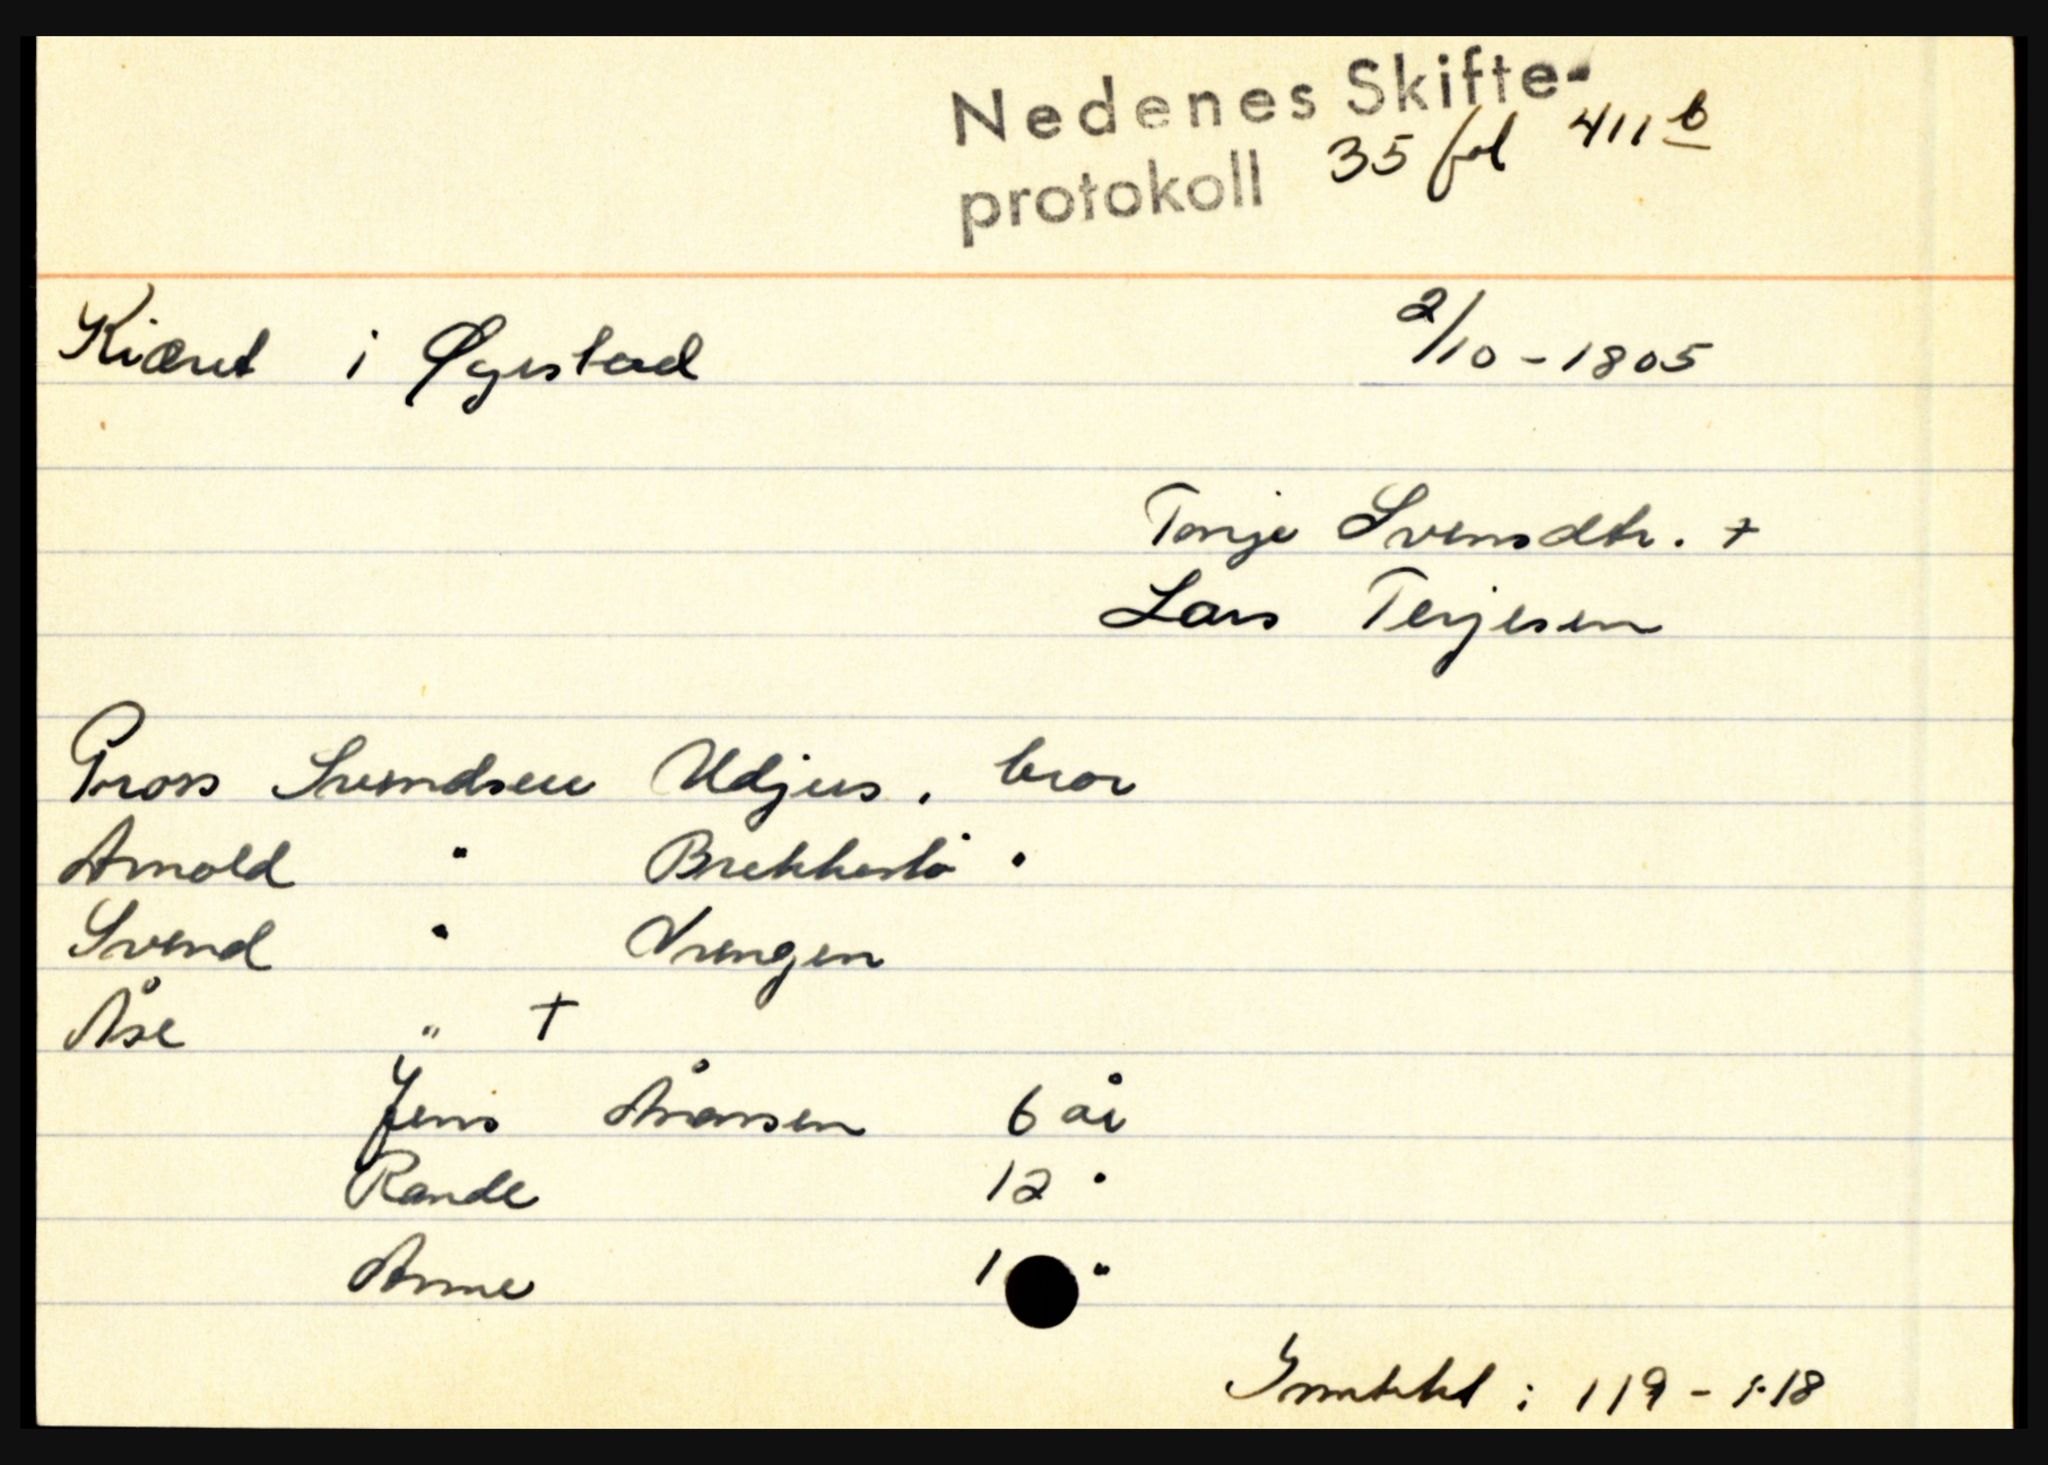 Nedenes Skifte-
protokoll 35 fol 411 b
Kiæret i Øyestad 2/10 - 1805
Tonje Svensdtr. +
Lars Terjesen
Gross Svendsen Udjus, bror
Arnold " Brekkestø "
Svend " Vrengen
Åse " †
Jens Ånonsen 6 år
Rande 12 "
Anne 1 "
Inntekt : 119 - 1-18